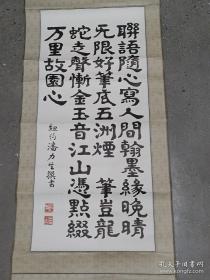 聯語隨心寫人間翰墨緣晚晴
无限好筆底五洲煙 筆豈龍
蛇走聲慚金玉音江山憑點綴
万里故園心
紐約潘力生撰書